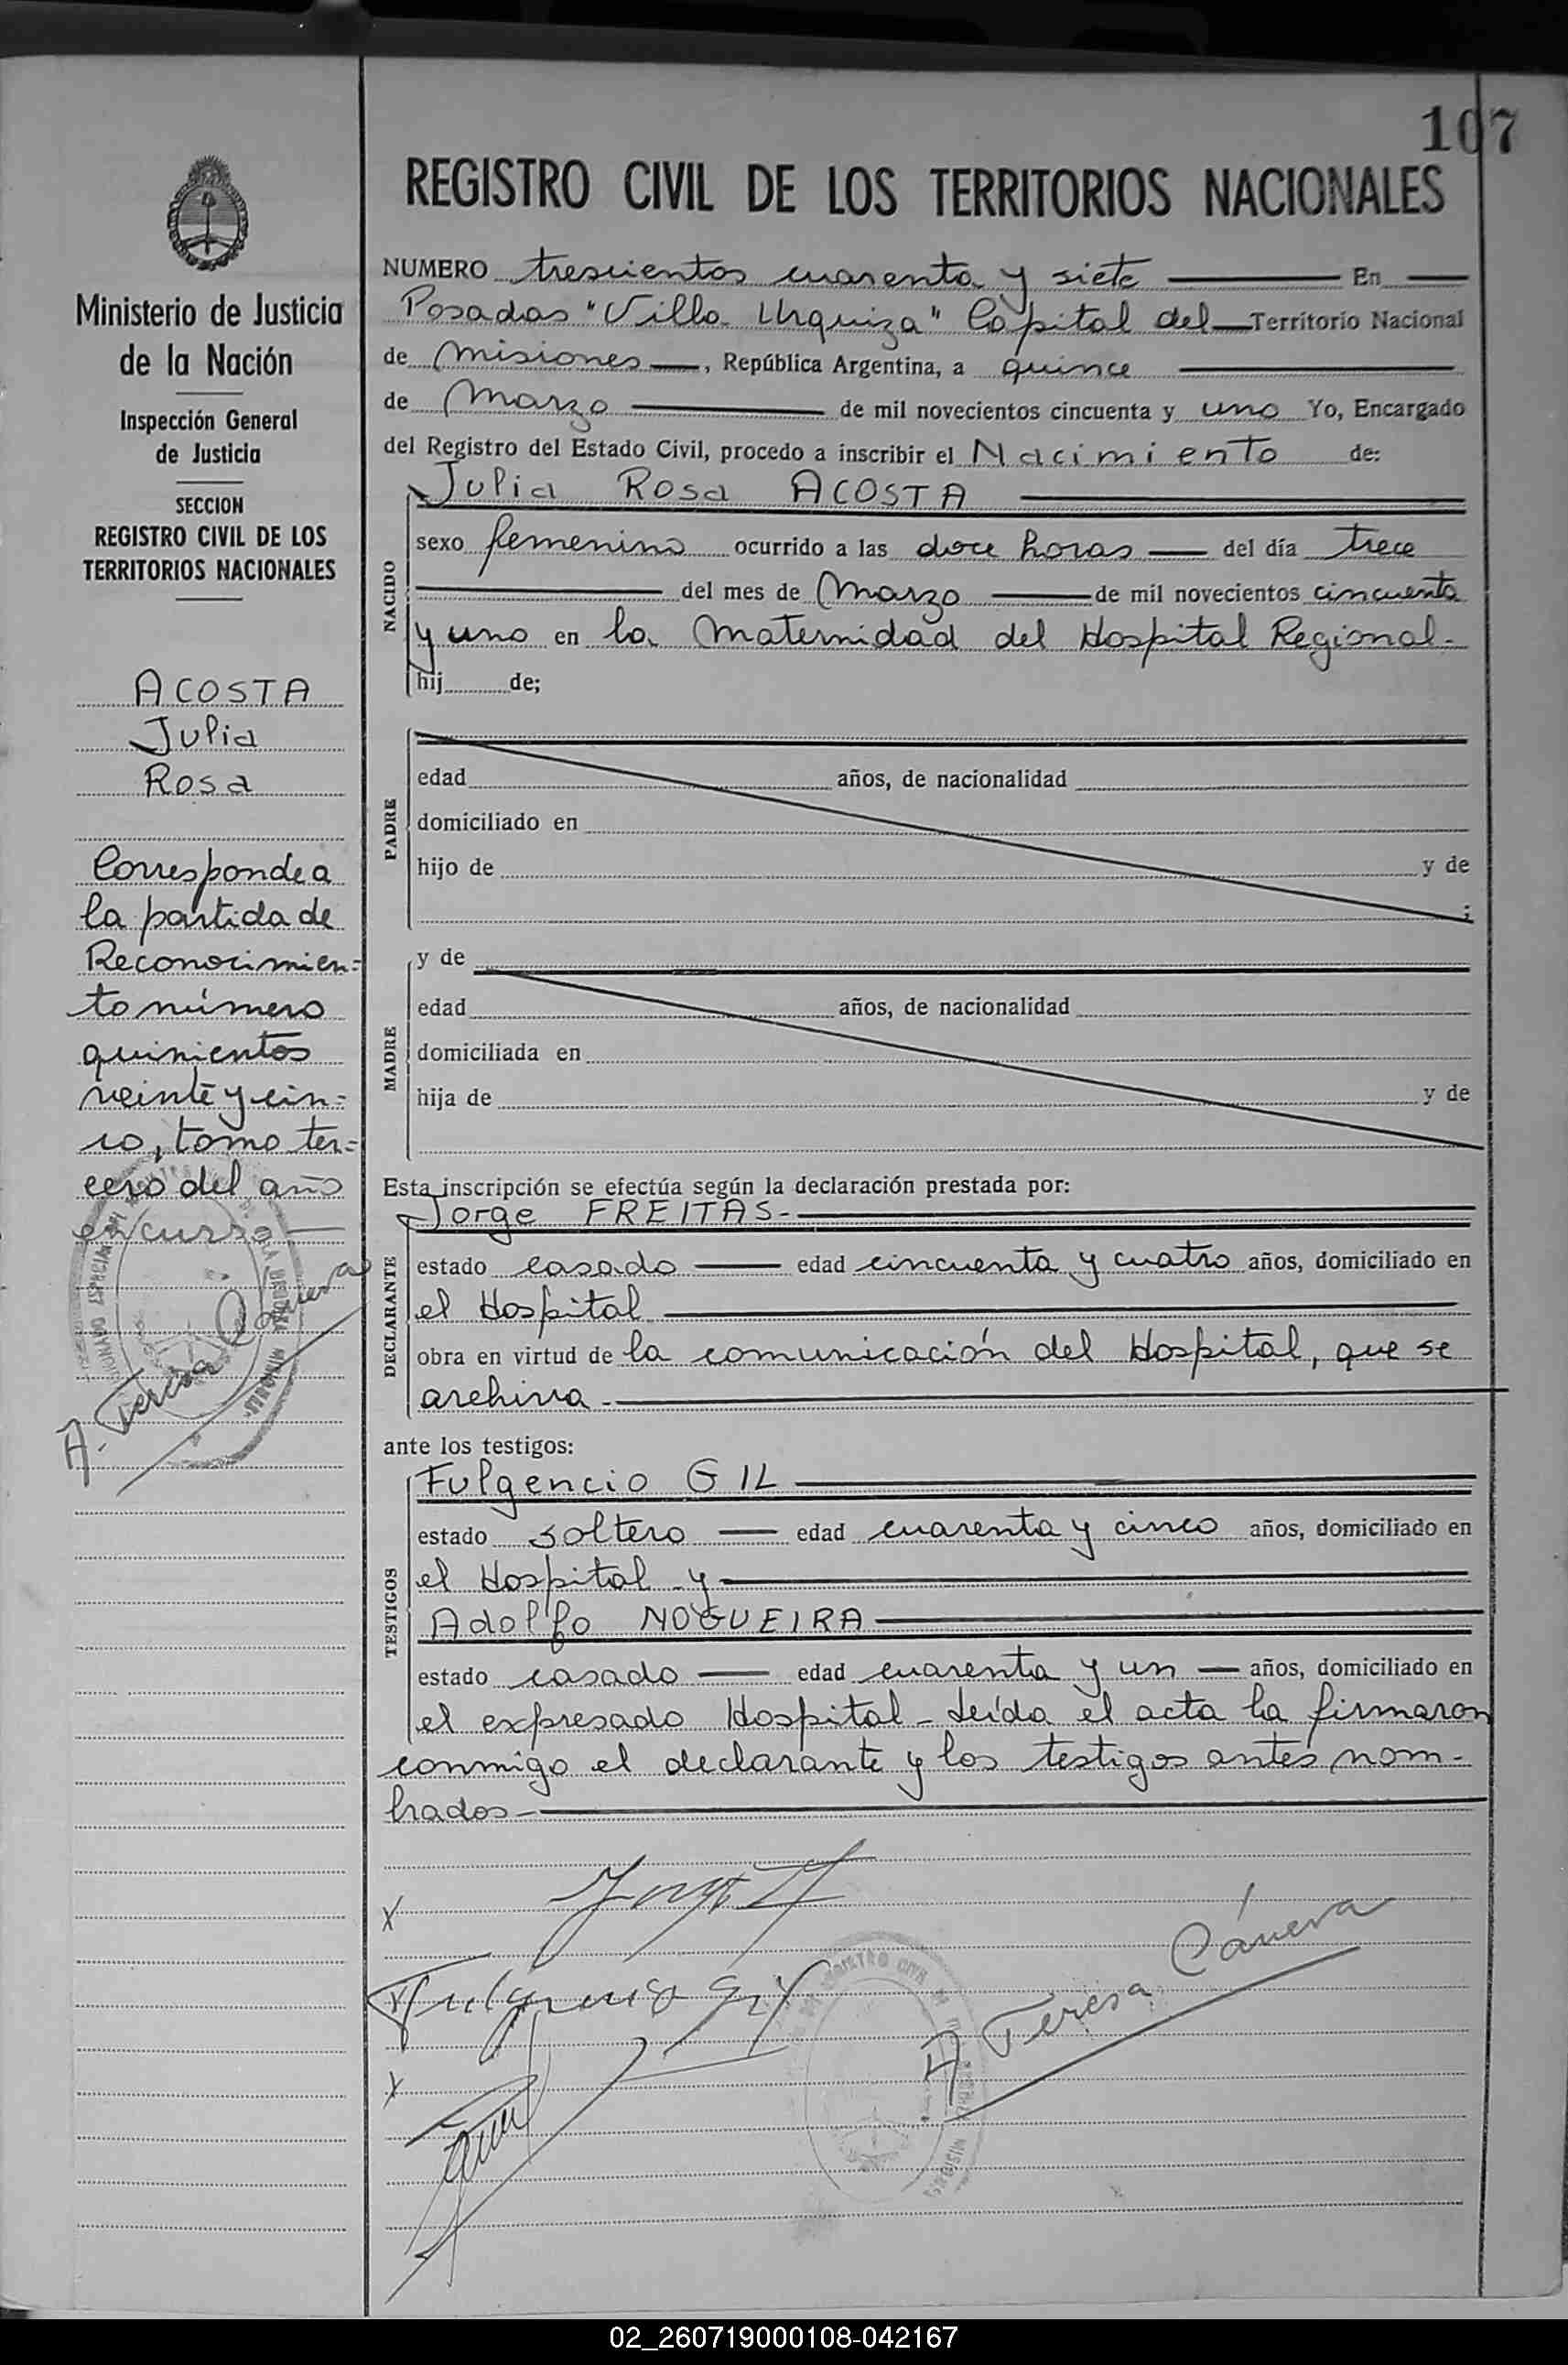 107
REGISTRO CIVIL DE LOS TERRITORIOS NACIONALES
Ministerio de Justicia
de la Nación
Inspección General
de Justicia
SECCION
REGISTRO CIVIL DE LOS
TERRITORIOS NACIONALES
ACOSTA
Julia
Rosa
Corresponde a
la partida de
Reconocimien=
to número
quinientos
veinte y cin=
co, tomo ter=
cero del año
en curso
A. Teresa Cánera
NUMERO trescientos cuarenta y siete En
Posadas "Villa Urquiza" Capital del Territorio Nacional
de Misiones, República Argentina, a quince
de Marzo de mil novecientos cincuenta y uno Yo, Encargado
del Registro del Estado Civil, procedo a inscribir el Nacimiento de:
NACIDO
Julia Rosa ACOSTA
sexo femenino ocurrido a las doce horas del día trece
del mes de Marzo de mil novecientos cincuenta
y uno en la Maternidad del Hospital Regional-
hij de;
PADRE
edad años, de nacionalidad
domiciliado en
hijo de y de
;
MADRE
y de
edad años, de nacionalidad
domiciliada en
hija de y de
Esta inscripción se efectúa según la declaración prestada por:
DECLARANTE
Jorge FREITAS-
estado casado edad cincuenta y cuatro años, domiciliado en
el Hospital
obra en virtud de la comunicación del Hospital, que se
archiva-
ante los testigos:
TESTIGOS
Fulgencio GIL
estado soltero edad cuarenta y cinco años, domiciliado en
el Hospital y
Adolfo NOGUEIRA
estado casado edad cuarenta y un años, domiciliado en
el expresado Hospital- Leída el acta la firmaron
conmigo el declarante y los testigos antes nom-
brados-
x
x Fulgencio Gil
x
A Teresa Cánera
02_260719000108-042167